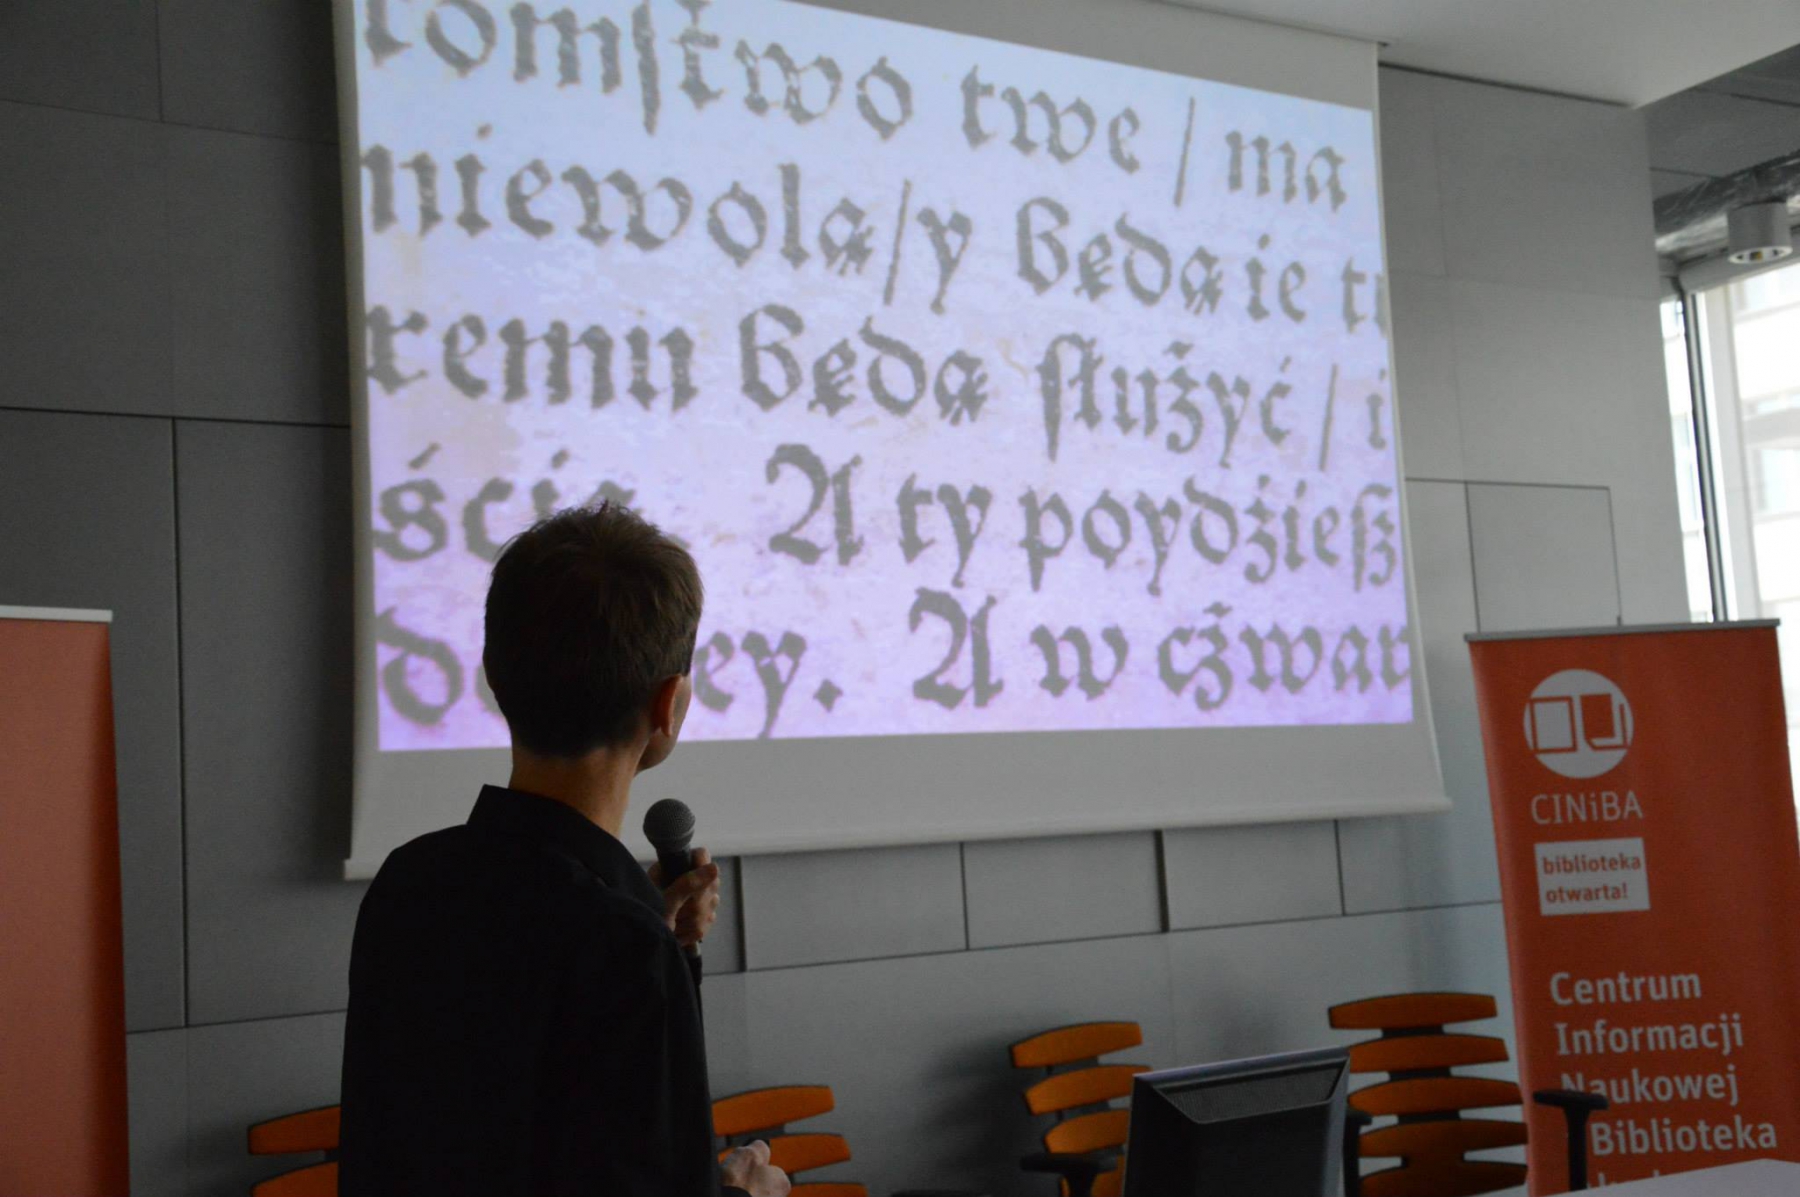 tomſtwo twe / ma
niewolą/y będą ie
remu będą ſłużyć /
ścią. A ty poydźieſz
A w cźwar
CINiBA
biblioteka
otwarta!
Centrum
Informacji
Naukowej
Biblioteka